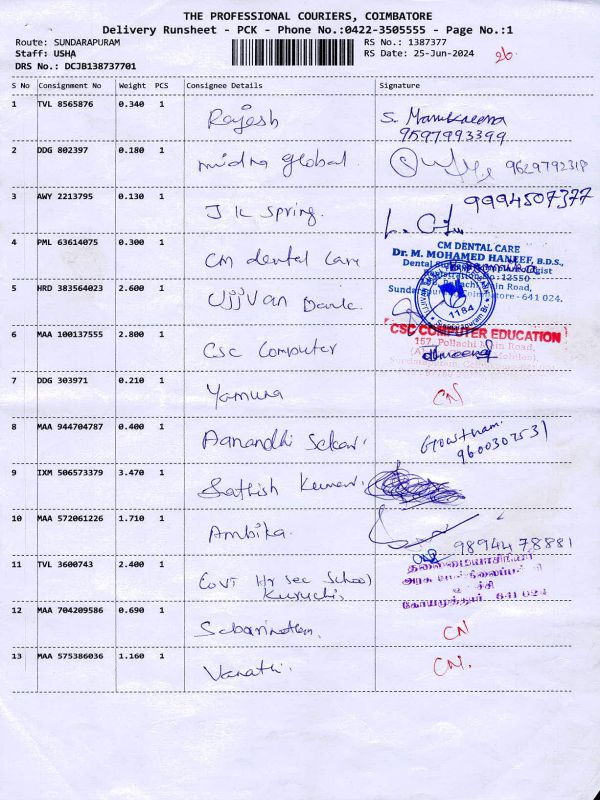 THE PROFESSIONAL COURIERS, COIMBATORE
Delivery Runsheet - PCK - Phone No.:0422-3505555 - Page No.:1
Route: SUNDARAPURAM
RS No.: 1387377
Staff: USHA
RS Date: 25-Jun-2024
26
DRS No.: DCJB138737701
S No Consignment No Weight PCS Consignee Details Signature
1 TVL 8565876 0.340 1 Rajesh
9597993399
2 DDG 802397 0.180 1 midna global. 9629792318
3 AWY 2213795 0.130 1 J K Spring. 9994507377
4 PML 63614075 0.300 1 CM dental care
CM DENTAL CARE
Dr. M. MOHAMED HANEEF, B.D.S.,
5 HRD 383564023 2.600 1 Ujjvan Bank.
1184
6 MAA 100137555 2.800 1 Csc Computer
CSC COMPUTER EDUCATION
157, Pollachi Main Road,
7 DDG 303971 0.210 1 Yamuna CN
8 MAA 944704787 0.400 1 Aanandhi Gowtham.
9600307531
9 IXM 506573379 3.470 1 Sathish Kumar.
10 MAA 572061226 1.710 1 Ambika.
9894478881
11 TVL 3600743 2.400 1 Govt Hr Sec School
Kurichi.
12 MAA 704209586 0.690 1 Sabarinathan. CN
13 MAA 575386036 1.160 1 Vanathi. CN.